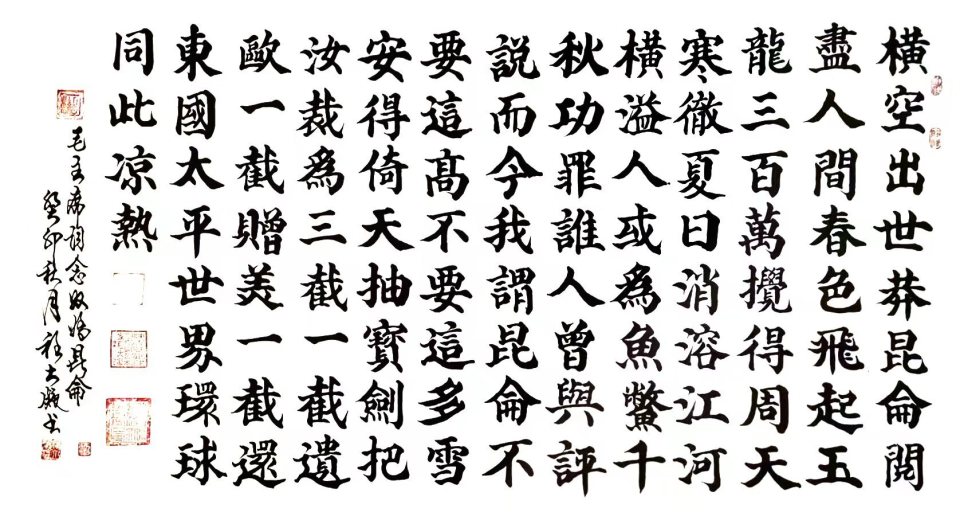 橫空出世莽昆侖閱
盡人間春色飛起玉
龍三百萬攪得周天
寒徹夏日消溶江河
橫溢人或為魚鱉千
秋功罪誰人曾與評
說而今我謂昆侖不
要這髙不要這多雪
安得倚天抽寶劍把
汝裁為三截一截遺
歐一截贈美一截還
東國太平世界環球
同此凉熱
毛主席詞念奴嬌昆侖
癸卯秋月